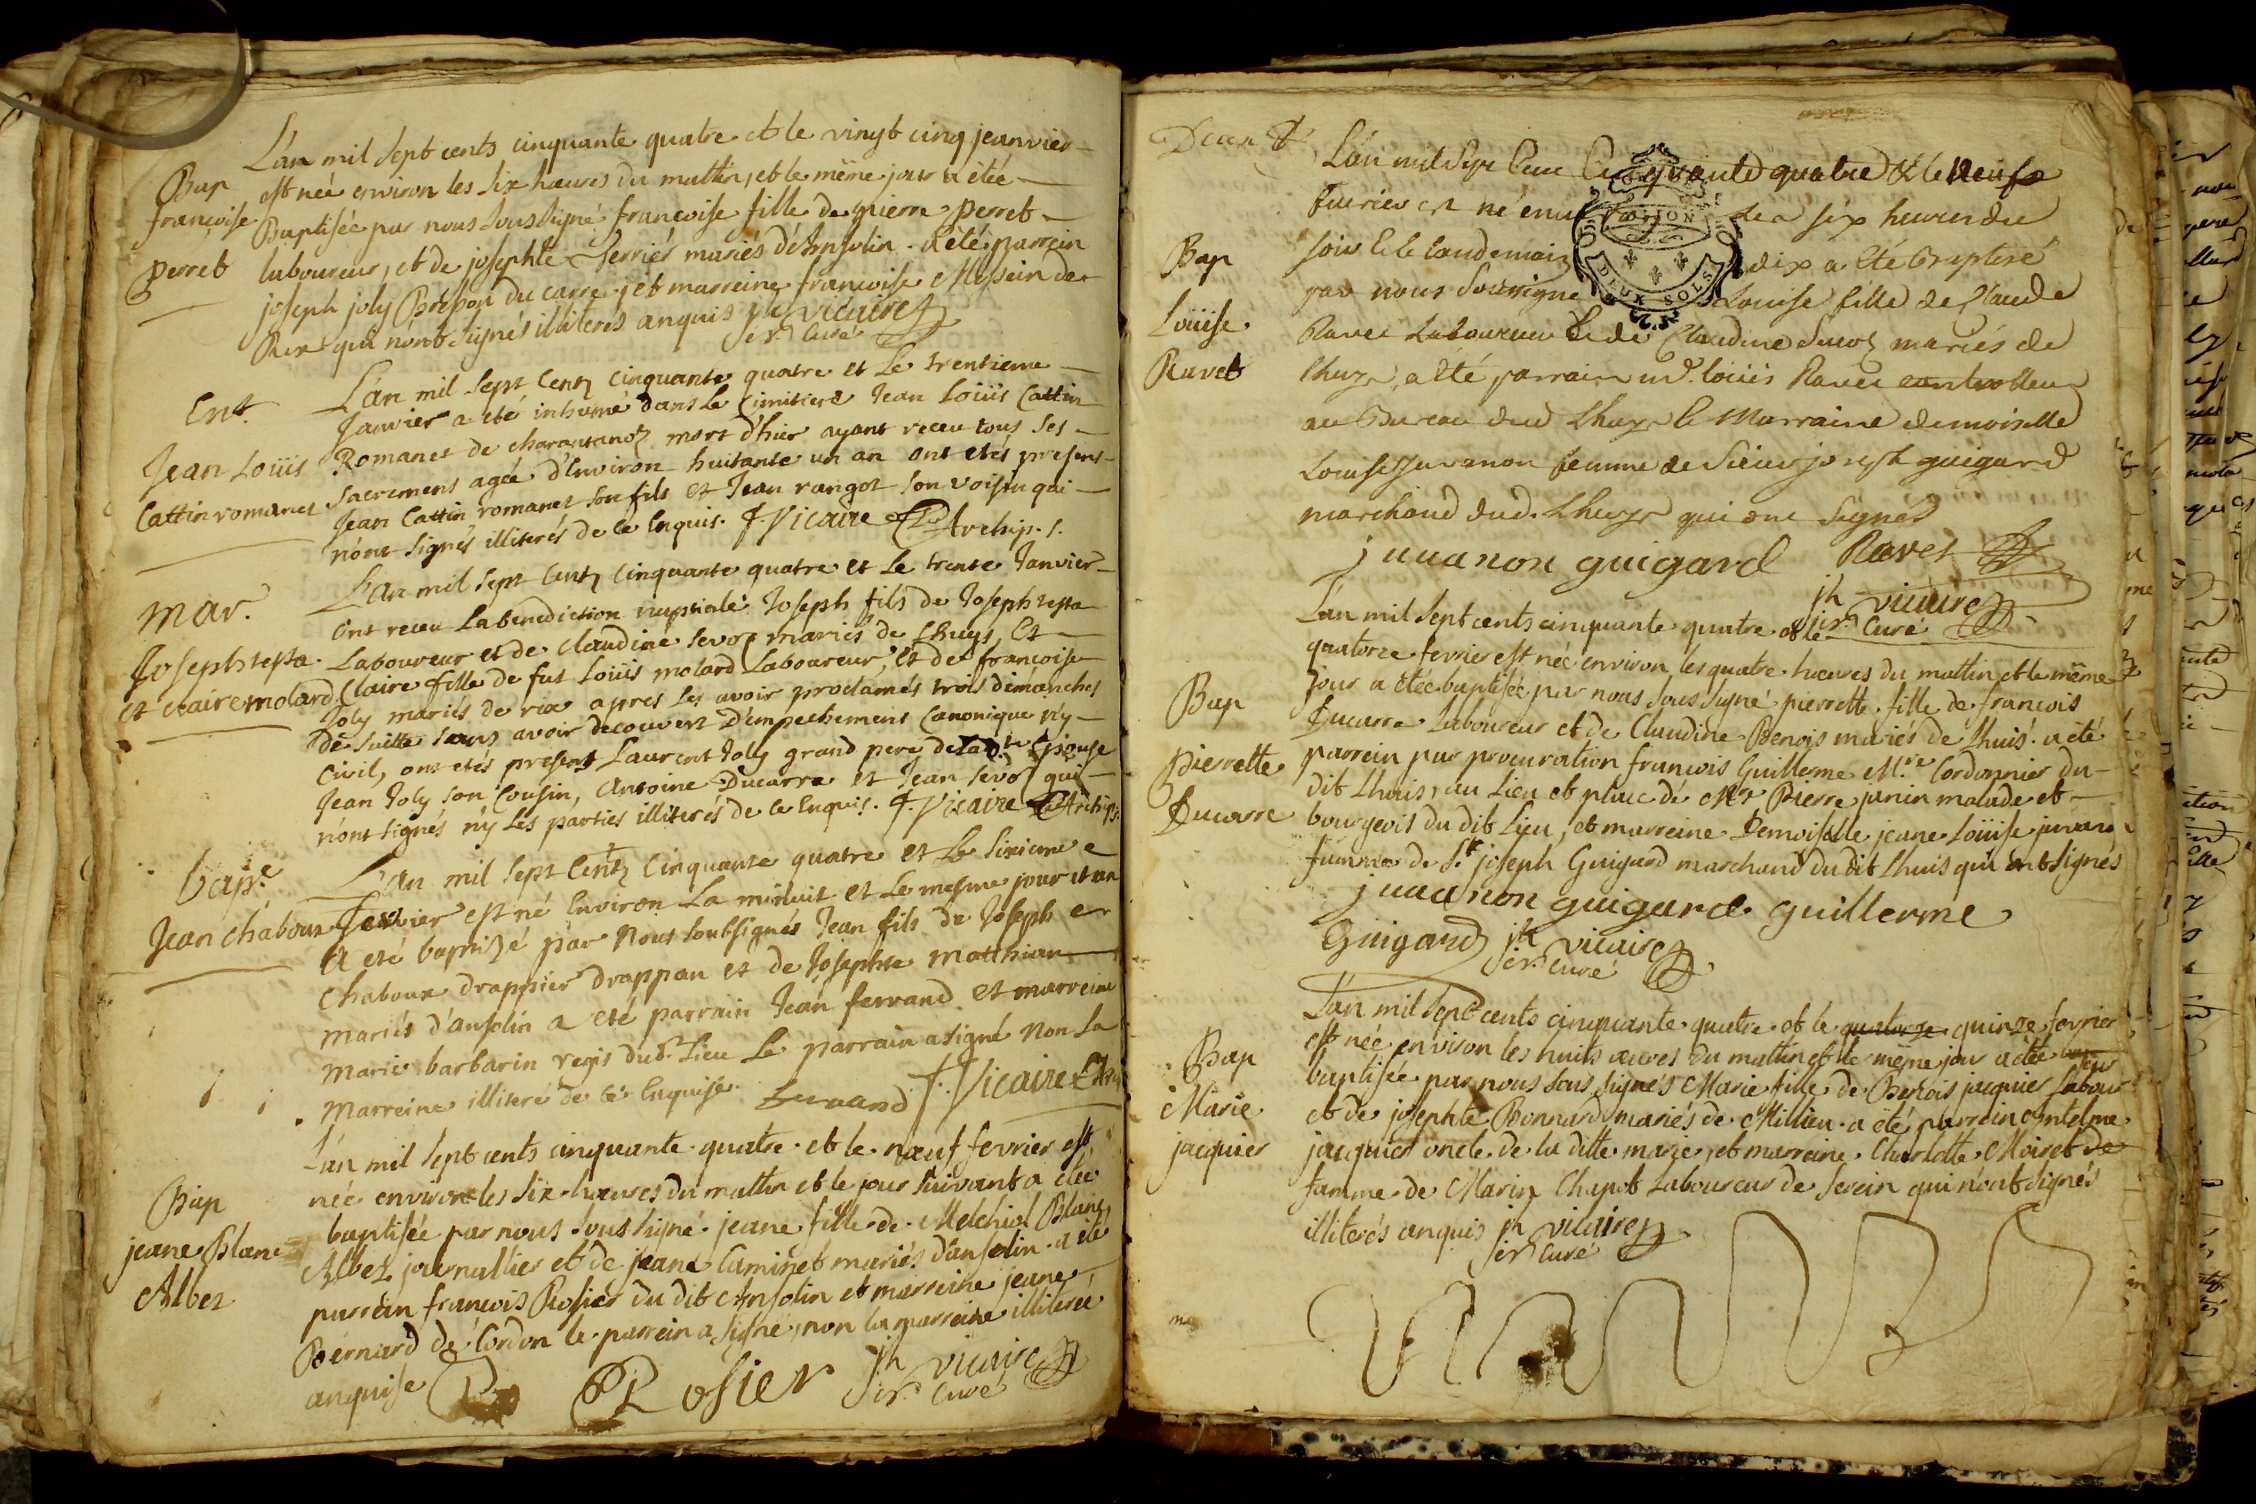 L'an mil sept cents cinquante quatre et le vingt cinq jeanvier
Bap est née environ les six hæures du mattin, et le même jour a étée
francoise Baptisée par nous sous signé francoise fille de pierre perret
perret laboureur, et de josephte Perrier mariés d'Ansolin. a été parrein
joseph joly du carre, et marreine francoise Messein de
Rix qui n'ont signés illiterés anquis jh vicaire
ser. Curé
L'an mil sept Centz cinquante quatre et Le trentieme
Ent. Janvier a eté inhumé dans Le Cimitiere Jean Loüis Cattin
Jean Loüis Romanet de charantanoz mort d'hier ayant receu tous ses
Cattin romanet Sacremens agée d'Environ huitante un an ont etés presens
Jean Cattin romanet son fils et Jean rangot son voisin qui
n'ont signés illiterés de ce Enquis. f. Vicaire Archip. s.
L'an mil sept Centz Cinquante quatre et Le trente Janvier
mar. Ont receu La benediction nuptiale Joseph fils de Joseph
Joseph Laboureur et de Claudine sevoz mariés de Lhuys, Et
et claire molard Claire fille de fut Loüis molard Laboureur, et de francoise
Joly mariés de rix apres les avoir proclamés trois dimanches
de suitte sans avoir decouvert D'empechement Canonique n'y
Civil, ont etés present Laurent Joly grand pere de lad.te Epouse
Jean Joly son Cousin, Antoine Ducarre et Jean sevoz qui
n'ont signés n'y Les parties illiterés de ce Enquis. f. Vicaire Archip.
bap.e L'an mil sept Centz Cinquante quatre et Le sixieme
Jean chaboux fevrier est né Environ La minuit et Le mesme jour
a eté baptizé par Nous soubsignés Jean fils de Joseph
Chaboux drappier drappan et de Josephte matthian
mariés d'ansolin a eté parrain Jean ferrand et marreine
marie barbarin regis dud. Lieu Le parrain a signé Non La
marreine illiteré de ce Enquise. ferrand f. Vicaire
L'an mil sept cents cinquante quatre et le næuf fevrier est
Bap née environ les six hæures du mattin et le jour suivant a étée
jeane Blanc baptisée par nous sous signé jeane fille de Melchiol Blanc
Albez Albez journallier et de jeane Caminet mariés d'ansolin. a été
parrein francois Rosier du dit Ansolin et marreine jeane
Bernard de Cordon le parrein a signé, non la marreine illiterée
anquise Rosier jh vicaire
ser. Curé
L'an mil sept Cent Cinquante quatre & le neuf
fevrier est né environ les six heures du
Bap soir & le landemain dix a été baptisé
Loüise par nous soussigné Louise fille de Claude
Ravet Ravet Laboureur & de Claudine Sevoz mariés de
DEUX SOLS
Lhuys, a été parrain m.r loüis Ravet controlleur
au Bureau dud Lhuys & Marraine demoiselle
Louise Juvanon femme de Sieur joseph guigard
marchand dud. Lhuys qui ont signés
juvanon guigard Ravet
jh vicaire
ser. Curé
L'an mil sept cents cinquante quatre et le
quatorze fevrier est née environ les quatre hæures du mattin, et le même
Bap jour a étée baptisée par nous sous signé pierrette fille de francois
pierrette Ducarre Laboureur et de Claudine Benois mariés de Lhuis. a été
Ducarre parrein par procuration francois Guillerme M.re Cordonnier du
dit Lhuis, au Lieu et place de Mr Pierre janin malade et
bourgeois du dit Lieu, et marreine Demoiselle jeane Loüise juvanon
famme de Sr. joseph Guigard marchand du dit Lhuis qui ont signés
juvanon guigard guillerme
Guigard jh vicaire
ser. Curé
L'an mil sept cents cinquante quatre et le quatorze quinze fevrier
Bap est née environ les huits æures du mattin et le même jour a étée
Marie baptisée par nous sous signés Marie fille de Benois jacquier Laboureur
jacquier et de josephte Bonnard mariés de Millieu. a été parrein Antelme
jacquier oncle de la ditte marie, et marreine Charlotte Moiret de
famme de Marin Chapot Laboureur de Serein qui n'ont signés
illiterés anquis jh vicaire
ser. Curé